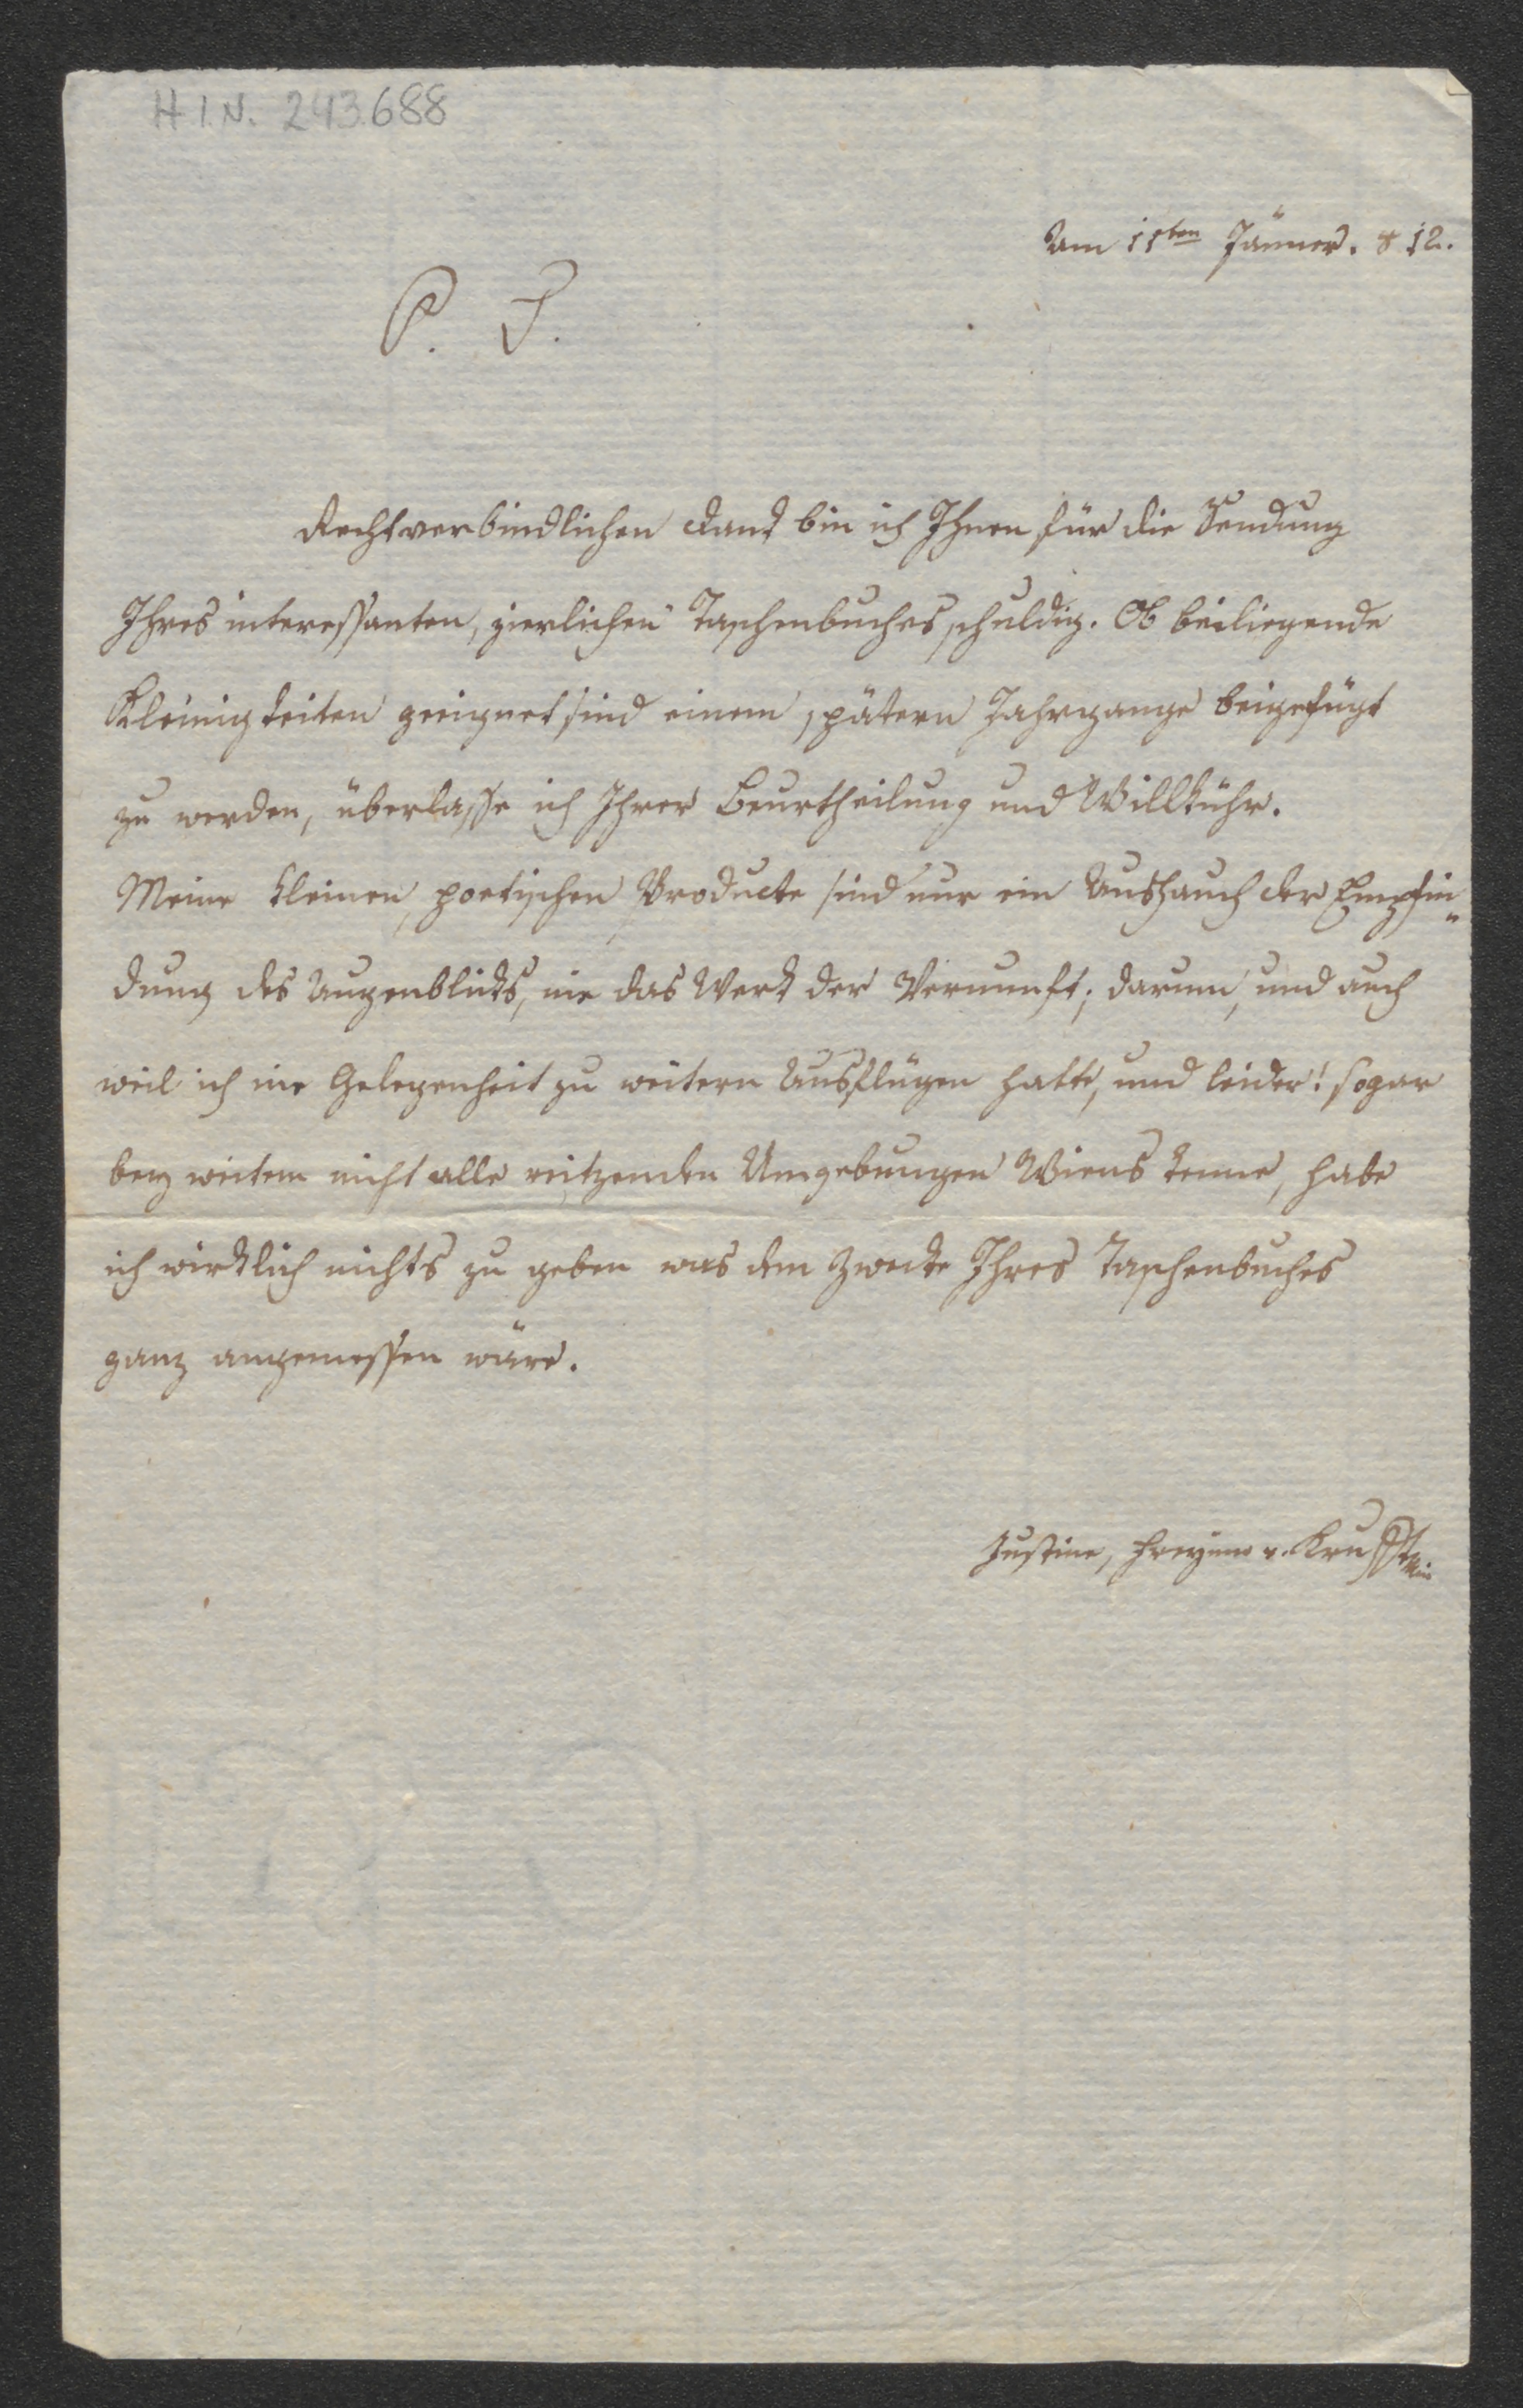 H.I.N. 243.688
Am 11ten Jänner. 812.
P. T.
Rechtverbindlichen Dank bin ich Ihnen für die Sendung
Ihres interessanten, zierlichen Taschenbuches schuldig. Ob beiliegende
Kleinigkeiten geeignet sind einem spätern Jahrgange beigefügt
zu werden, überlasse ich Ihrer Beurtheilung und Willkühr.
Meine kleinen, poetischen Producte sind nur ein Aushauch der Empfin„
dung des Augenblicks, nie das Werk der Vernunft; darum, und auch
weil ich nie Gelegenheit zu weitern Ausflügen hatte, und leider! sogar
bey weitem nicht alle reitzenden Umgebungen Wiens kenne, habe
ich wirklich nichts zu geben was dem Zwecke Ihres Taschenbuches
ganz angemessen wäre.
Justine, Freyinn v. Krufft